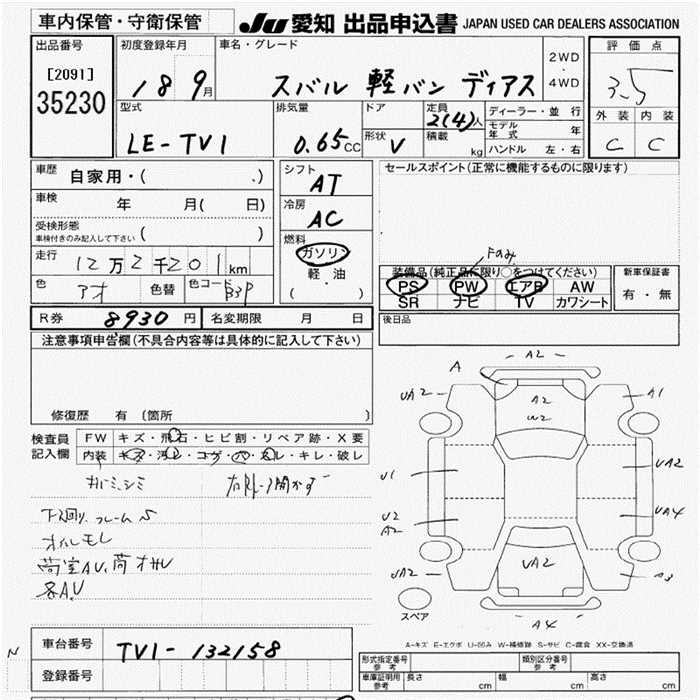 車内保管・守衛保管
JU 愛知 出品申込書 JAPAN USED CAR DEALERS ASSOCIATION
出品番号
[2091]
35230
初度登録年月
18 9月
車名・グレード
スバル 軽バン ディアス
2WD
・
4WD
評価点
3.5
外装 内装
C C
型式
LE-TV1
排気量
0.65cc
ドア
形状 V
定員 2(4)人
積載 kg
ディーラー・並行
モデル年式 年
ハンドル 左・右
車歴 自家用・( .)
車検 年 月( 日)
受検形態
車検付きのみ記入して下さい ( )
走行 12万2千201km
色 アオ 色替 色コード B3P
シフト
AT
冷房
AC
燃料
ガソリン
軽・油
( )
セールスポイント(正常に機能するものに限ります)
Fのみ
装備品(純正品に限り○をつけてください)
PS PW エアB AW
SR ナビ TV カワシート
新車保証書
有・無
R券 8930円 名変期限 月 日
後日品
注意事項申告欄(不具合内容等は具体的に記入して下さい)
修復歴 有 〔箇所 〕
検査員
記入欄
FW キズ・飛石・ヒビ割・リペア跡・X要
内装 キズ・汚レ・コゲ・穴・スレ・キレ・破レ
下廻り フレームS
オイルモレ
荷室AU,
各AU
A2
A
UA2
A1
A2
W2
U1
UA2
U2
A2
UA4
UA2
UA2
A3
スペア
A4
A-キズ E-エクボ U-凹み W-補修跡 S-サビ C-腐食 XX-交換済
N
車台番号 TV1-132158
登録番号
形式指定番号
参考
類別区分番号
参考
車庫証明用
参考
長さ cm 幅 cm 高さ cm